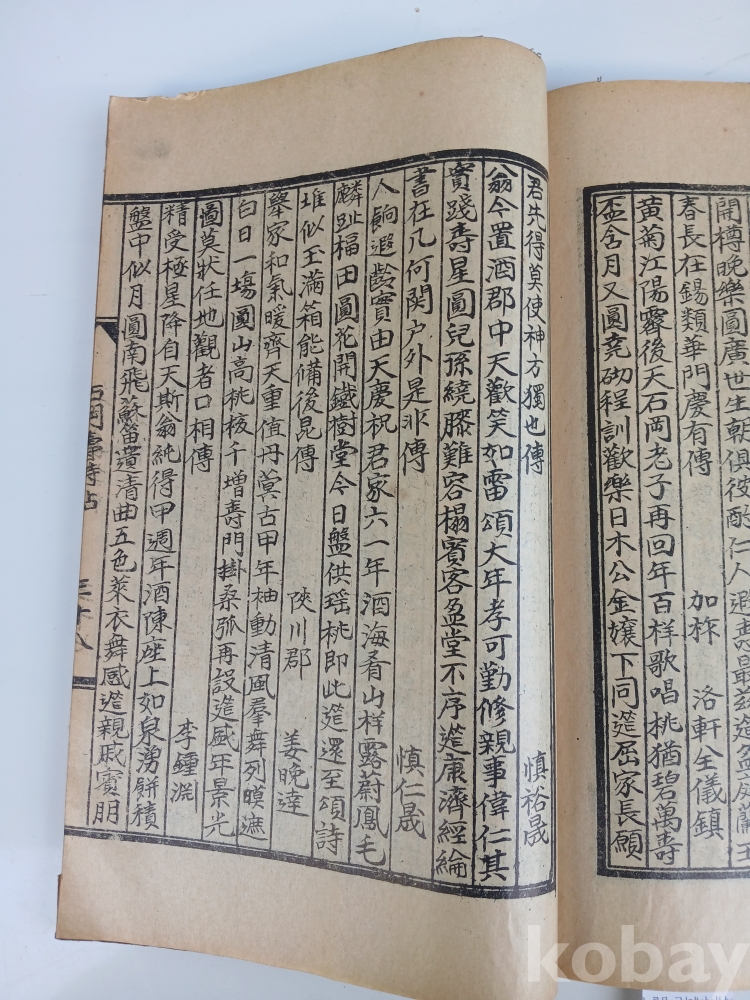 開樽晩樂圓廣世生朝俱後酌仁人
春長在錫類華門慶有傳 加祚 洛軒全儀鎮
黄菊江陽霽後天石岡老子再回年百樣歌唱桃猶碧萬壽
盃含月又圓競砌程訓歡樂日木公金孃下同筵屈家長願
君先得莫使神方獨也傳 慎裕晟
翁今置酒郡中天歡笑如雷頌大年孝可勤修親事偉仁其
實踐壽星圓兒孫繞膝難容榻賓客盈堂不序筵康濟經綸
書在几何関户外是非傳 慎仁晟
人餉遐齡實由天慶祝君家六一年酒海肴山样露蔚鳳毛
麟趾福田圓花開鐵樹堂今日盤供瑶桃即此筵還至頌詩
堆似玉滿箱能備後昆傳 陜川郡 姜晩達
擧家和氣暖齊天重值丹蓂古甲年袖動清風羣舞列暎遮
白日一塲圓山高桃核千增壽門掛桑弧再設筵盛年景光
圖莫狀任地觀者口相傳 李鍾淵
精受極星降自天斯翁純得甲週年酒陳座上如泉湧餠積
盤中似月圓南飛蘇笛遺清曲五色萊衣舞感筵親戚賓朋
石岡壽詩帖 三十八
kobay